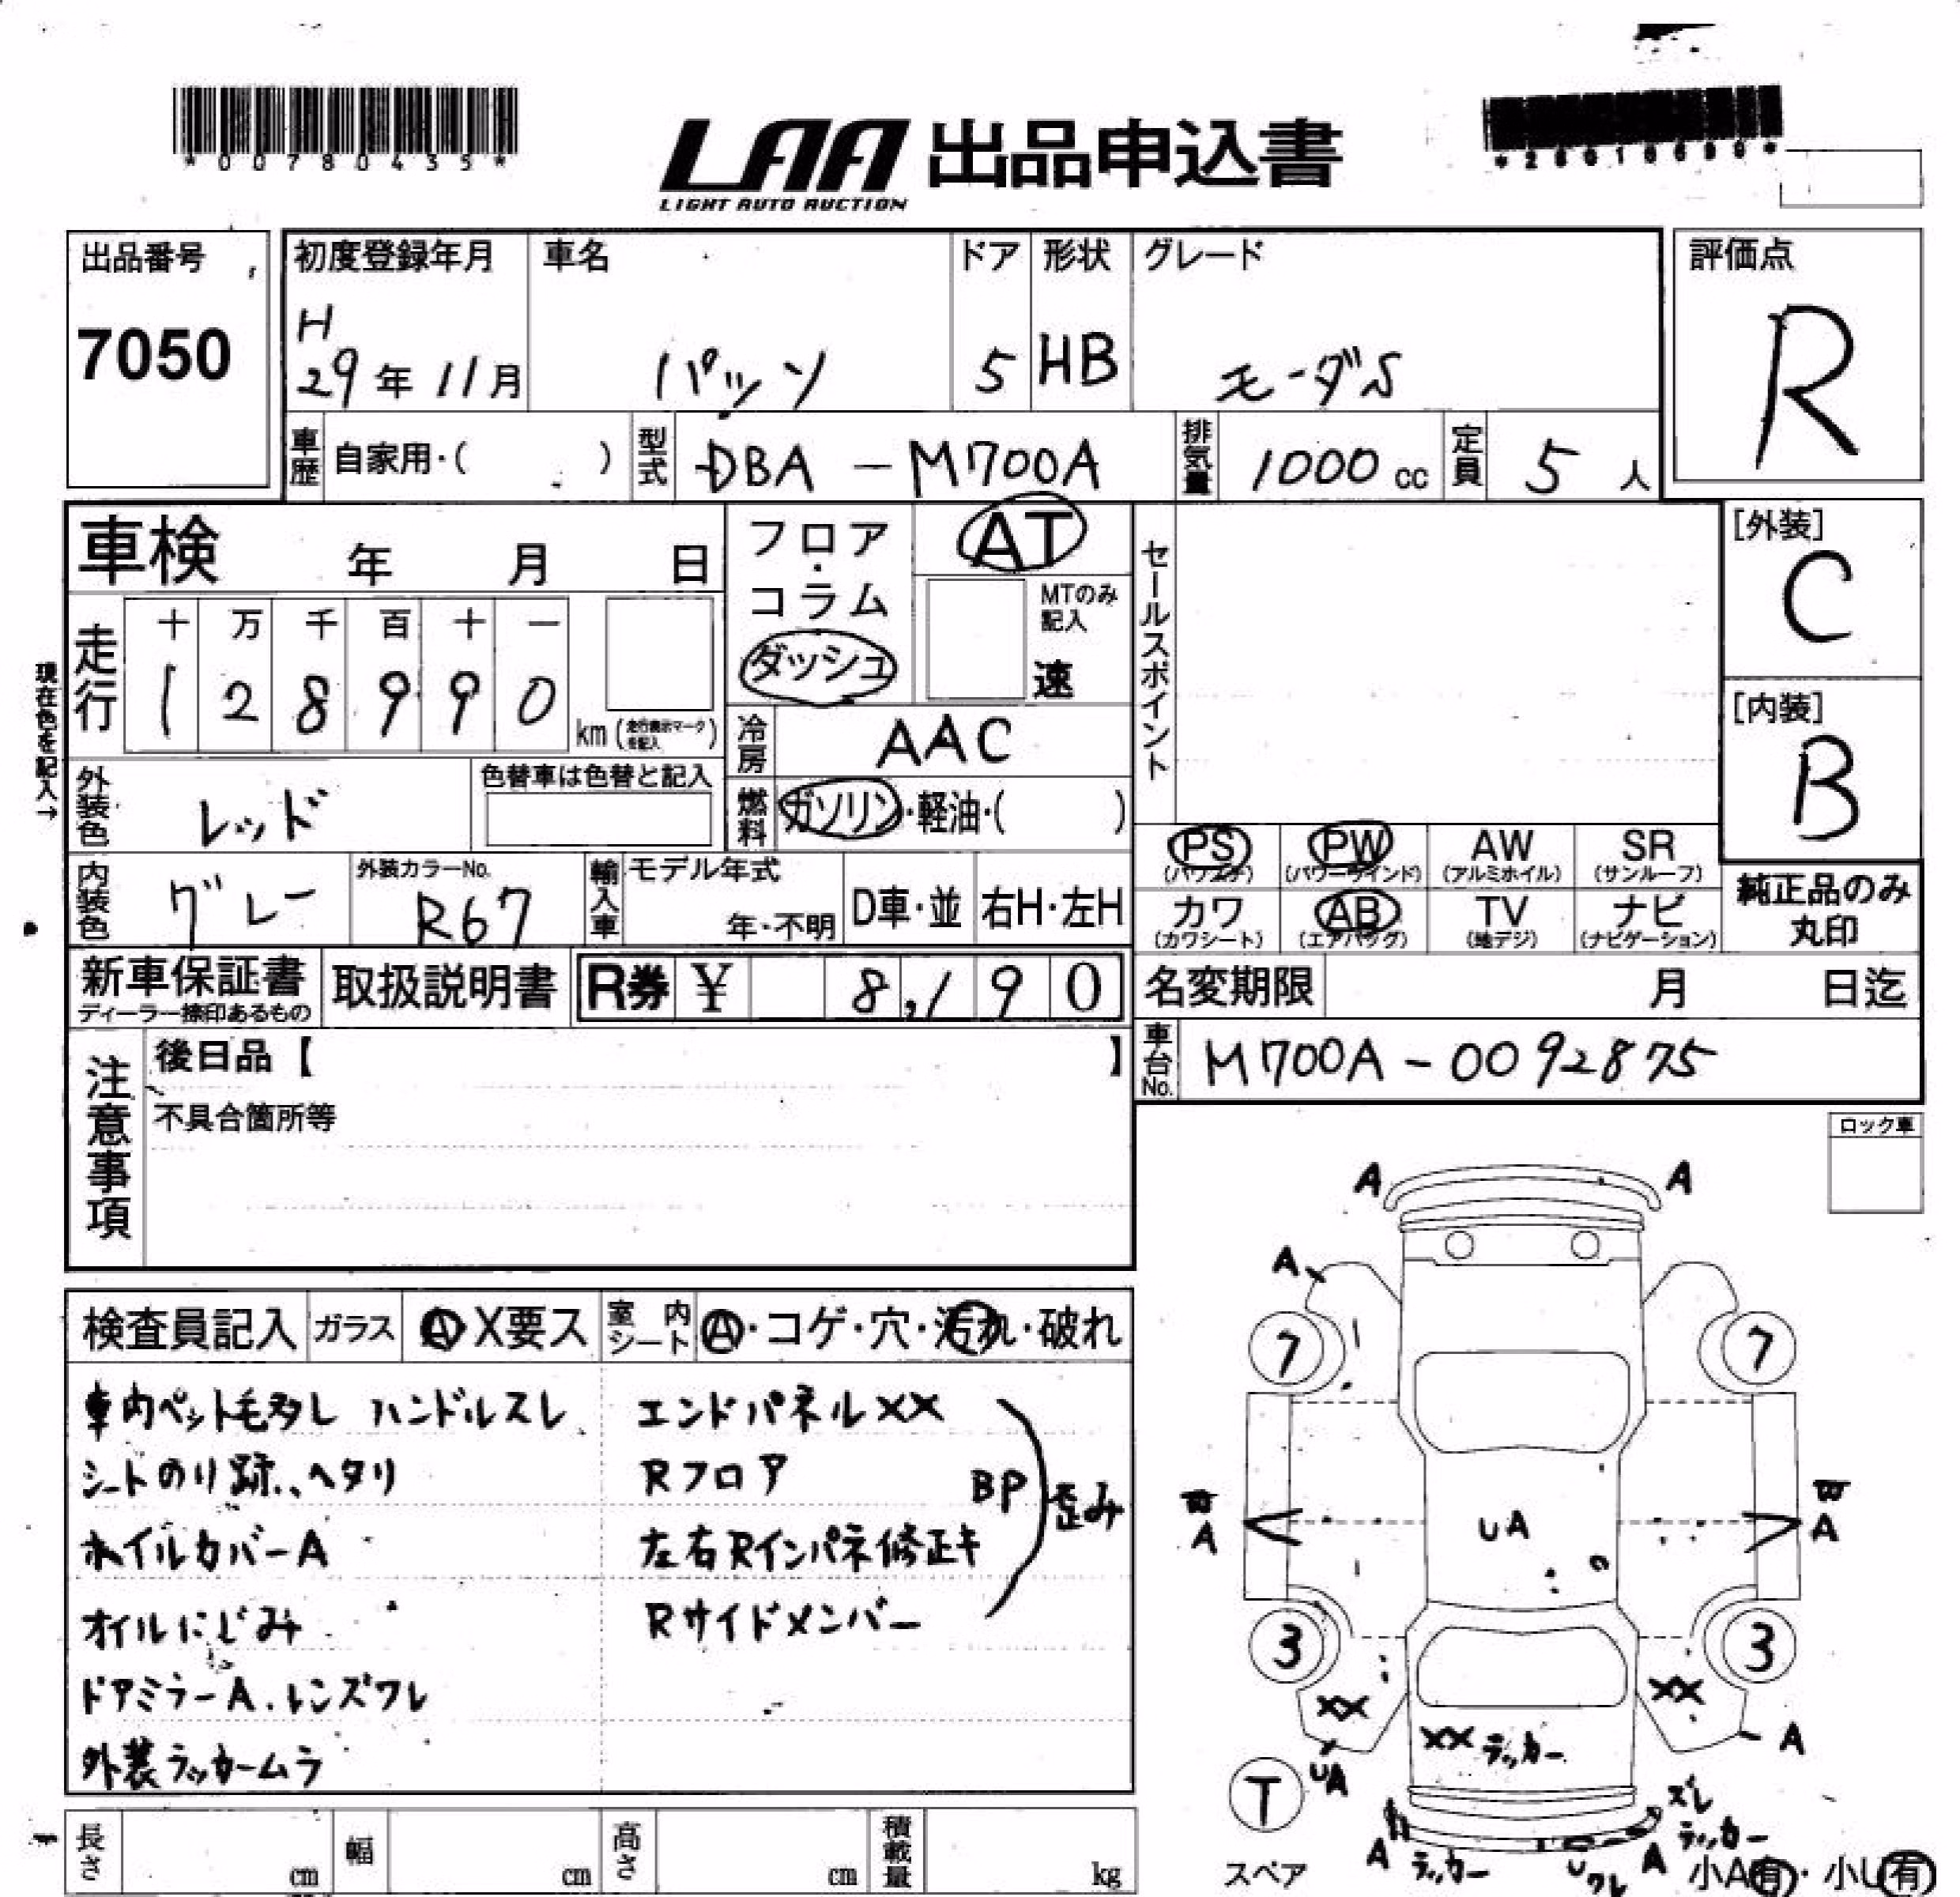 *00780435*
LAA 出品申込書
LIGHT AUTO AUCTION
出品番号
7050
初度登録年月
H
29年11月
車名
パッソ
ドア
5
形状
HB
グレード
モーダS
評価点
R
車歴 自家用・( )
型式 DBA-M700A
排気量 1000cc
定員 5人
車検 年 月 日
フロア・コラム
ダッシュ
AT
MTのみ記入
速
セールスポイント
[外装]
C
[内装]
B
現在色を記入→
走行 十 万 千 百 十 一
1 2 8 9 9 0 km
冷房 AAC
燃料 ガソリン・軽油・( )
外装色 レッド
色替車は色替と記入
内装色 グレー
外装カラーNo.
R67
輸入車
モデル年式
年・不明
D車・並
右H・左H
PS
(パワステ)
PW
(パワーウインド)
AW
(アルミホイル)
SR
(サンルーフ)
カワ
(カワシート)
AB
(エアバッグ)
TV
(地デジ)
ナビ
(ナビゲーション)
純正品のみ
丸印
新車保証書
ディーラー捺印あるもの
取扱説明書
R券 ¥ 8,190
名変期限 月 日迄
車台No. M700A-0092875
注意事項
後日品【 】
不具合箇所等
ロック車
検査員記入
ガラス A X要ス
室内シート A・コゲ・穴・汚れ・破れ
車内ペット毛多し ハンドルスレ
シートのり跡、ヘタリ
ホイルカバーA
オイルにじみ
ドアミラーA.レンズワレ
外装ラッカームラ
エンドパネルXX
Rフロア
左右Rインパネ修正キ
Rサイドメンバー
BP
歪み
A A
A
7 7
A UA A
3 3
XX XX
XX ラッカー
A
UA
T
スペア
ズレ
ラッカー
A ラッカー
U ワレ
A
小A有・小U有
長さ cm
幅 cm
高さ cm
積載量 kg